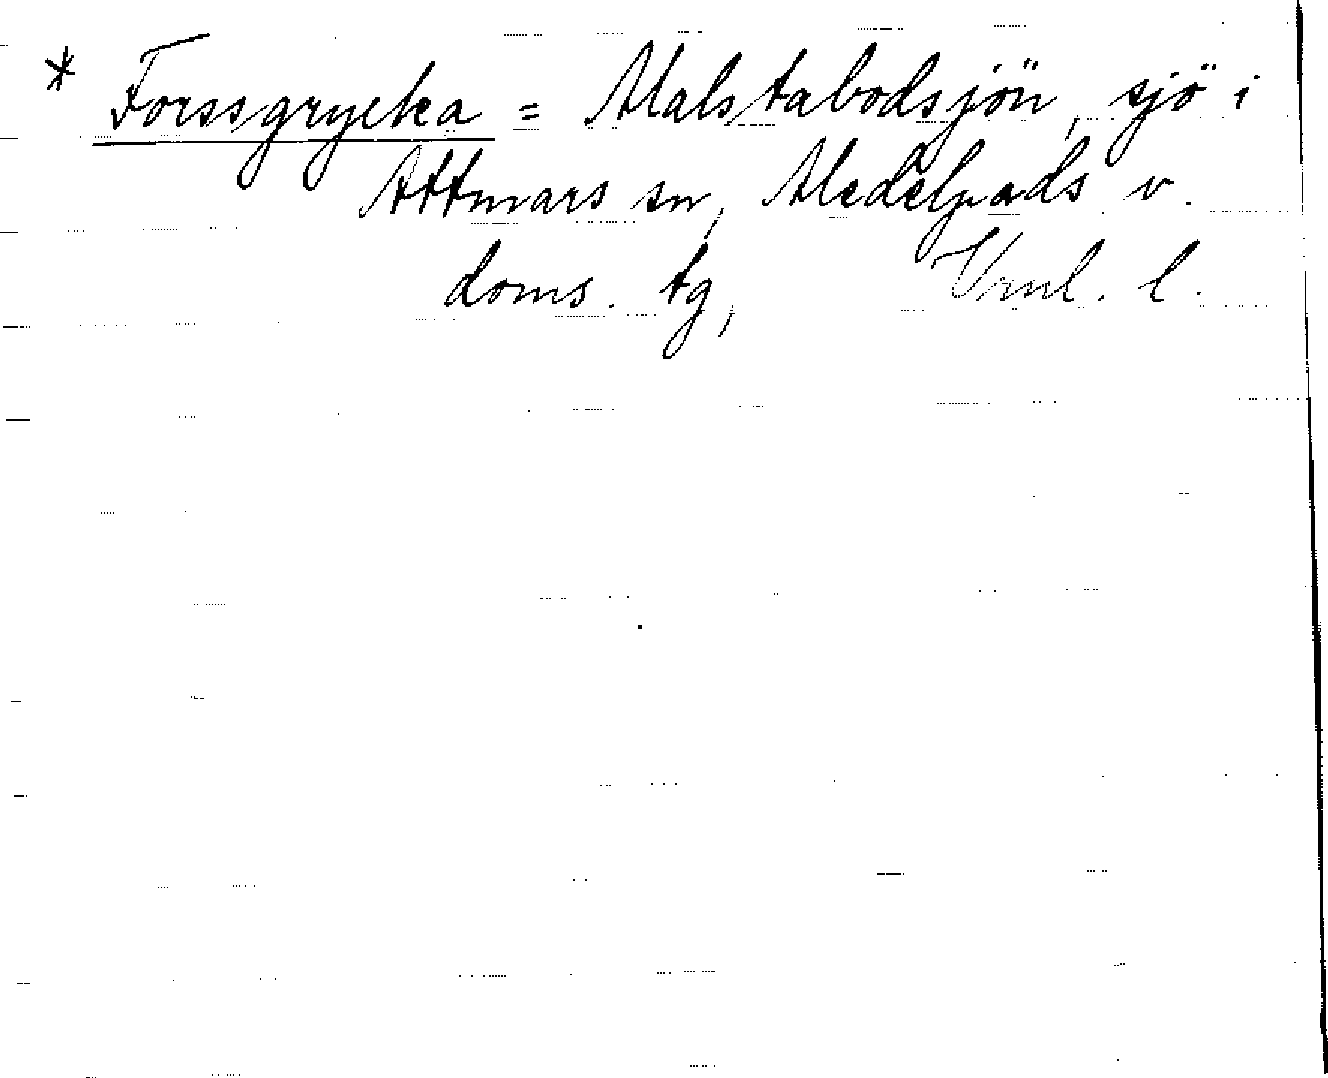 * Forssgrycka = Malstabodsjön, sjö i
Attmars sn, Medelpads v.
doms. tg, Vrnl. l.